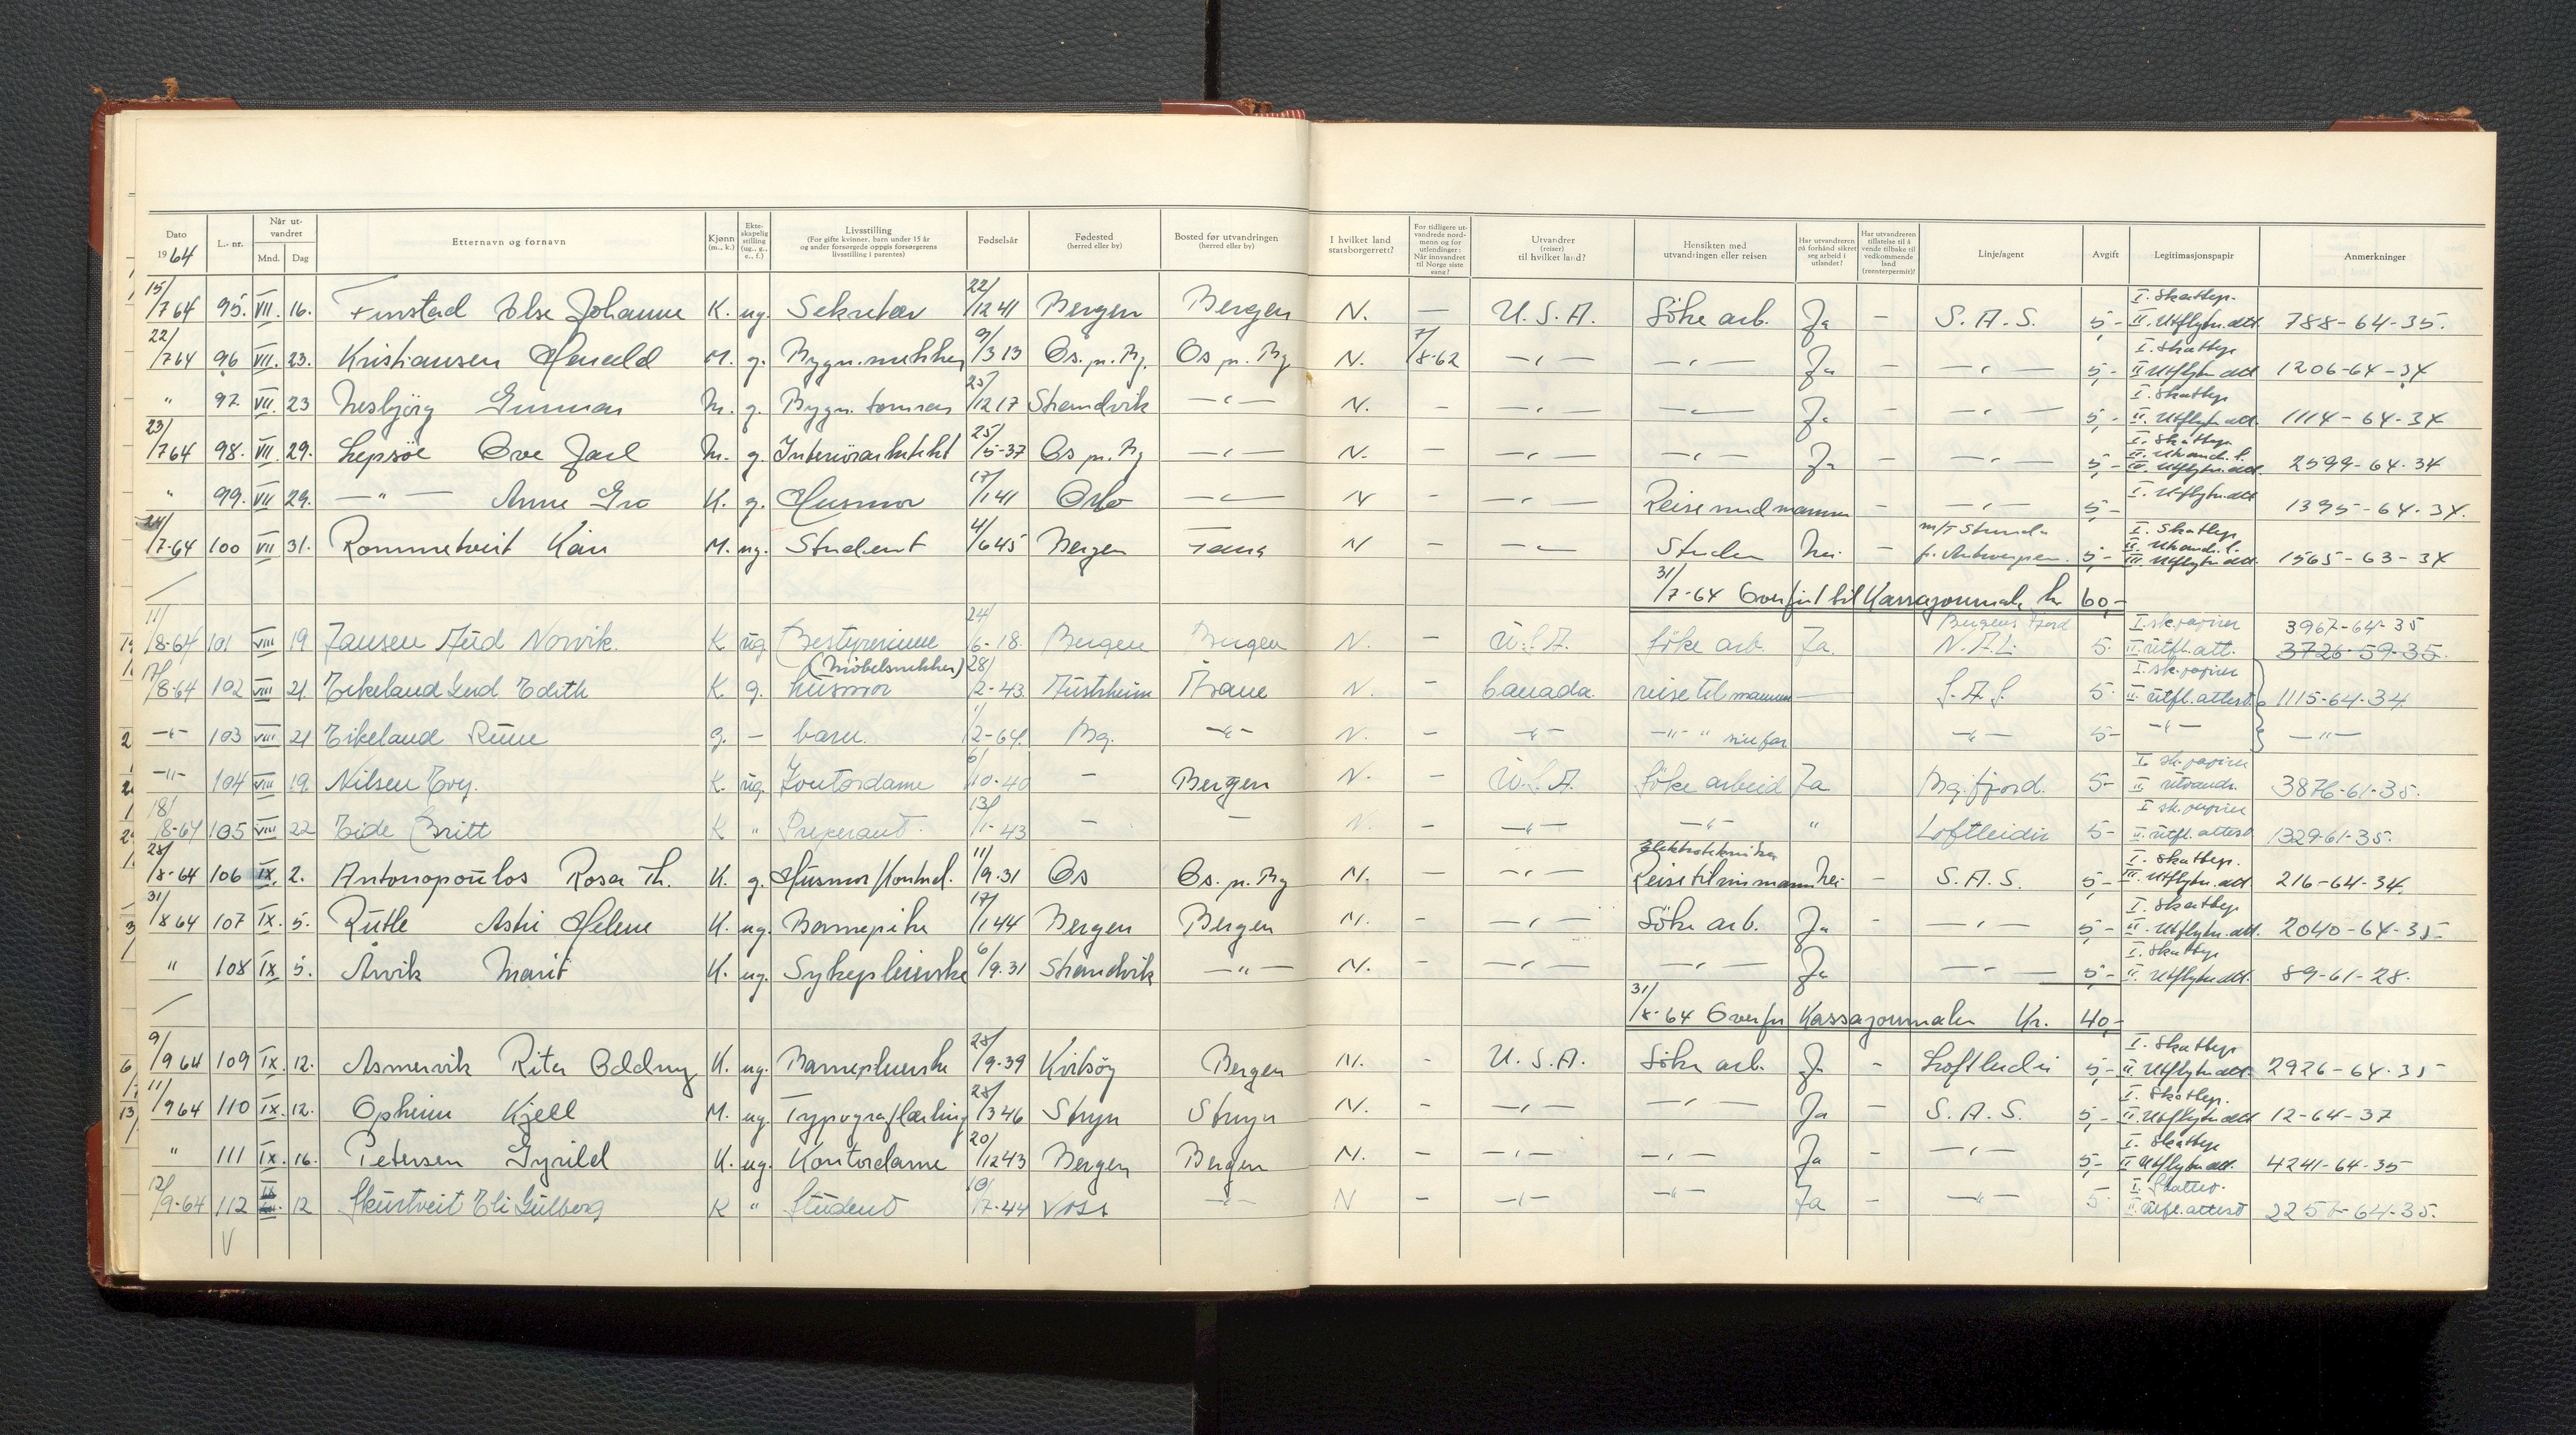 Dato 1964 L.-nr. Når utvandret Mnd. Dag Etternavn og fornavn Kjønn (m., k.) Ekteskapelig stilling (ug., g., e., f.) Livsstilling (For gifte kvinner, barn under 15 år og andre forsørgede oppgis forsørgerens livsstilling i parentes) Fødselsår Fødested (herred eller by) Bosted før utvandringen (herred eller by) I hvilket land statsborgerrett? For tidligere utvandrede nordmenn og for utlendinger: Når innvandret til Norge siste gang? Utvandrer (reiser) til hvilket land? Hensikten med utvandringen eller reisen Har utvandreren på forhånd sikret seg arbeid i utlandet? Har utvandreren tillatelse til å vende tilbake til vedkommende land (reenterpermit)? Linje/agent Avgift Legitimasjonspapir Anmerkninger
15/7 64 95. VII. 16. Finstad Else Johanne K. ug. Sekretær 22/12 41 Bergen Bergen N. — U.S.A. Söke arb. Ja – S.A.S. 5,- I. Skattep. II. Utflytn.att 788-64-35.
22/7 64 96 VII. 23. Kristiansen Harald M. g. Bygn.snekker 9/3 13 Os p. Bg. Os p. Bg N. 7/8-62 —"— —"— Ja – —"— 5,- I. Skattep II Utflytn att 1206-64-34
" 97. VII. 23 Nesbjörg Gunnar M. g. Bygn. tömrer 25/12 17 Strandvik —"— N. – —"— —"— Ja – —"— 5,- I. Skattep II. Utflytn att. 1114-64-34
23/7 64 98. VII. 29. Lepsöe Ove Jarl M. g. Interiörarkitekt 25/5-37 Os p. Bg —"— N. – —"— —"— Ja – —"— 5,- I. Skattep. II. Utvandr. l. III. Utflytn.att. 2599-64-34
" 99. VII 29. —"— Anne Gro K. g. Husmor 17/1 41 Oslo —"— N – —"— Reise med mannen – —"— 5,- I. Utflytn.att 1395-64-34.
24/7-64 100 VII 31. Rommetveit Kåre M. ug. Student 4/6 45 Bergen Fana N – —"— Studer Nei – m/T f. Antwerpen. 5,- I. Skattep II. Utvandr. l. III. Utflytn att. 1565-63-34
31/7-64 Overfört til Kassajournalen kr 60,-
11/8-64 101 VIII 19 Jansen Aud Norvik. K ug Bestyrerinne 24/6-18. Bergen Bergen N. – U.S.A. Söke arb. Ja. Bergensfjord N.A.L. 5. I. sk.papirer II. utfl.att. 3967-64-35 3726-59-35.
17/8-64 102 VIII 21. Eikeland Gerd Edith K. g. (Möbelsnekker) husmor 28/2-43 Austrheim Åsane N. – Canada. reise til mannen — S.A.S. 5- I. sk.papirer II. utfl.attest 1115-64-34
—"— 103 VIII 21 Eikeland Rune g. – barn. 11/2-64. Bg. —"— N. – —"— —"— " sin far —"— 5- —"— —"—
—"— 104 VIII 19. Nilsen Evy. K. ug. Kontordame 6/10-40 – Bergen N. – U.S.A. Söke arbeid Ja Bg.fjord. 5- I. sk.papirer II utvandr. 3876-61-35.
18/8-64 105 VIII 22 Eide Britt K " Preparant. 13/1-43 – – N. – —"— —"— " Loftleidir 5- I sk.papirer II. utfl. attest 1329-61-35.
28/8-64 106 IX. 2. Antonopoulos Rosa Th. K. g. Husmor/Kontord. 11/9.31 Os Os. p. Bg N. — —"— elektrotekniker Reise til sin mann Nei – S.A.S. 5,- I. Skattep. II. Utflytn. att 216-64-34.
31/8 64 107 IX. 5. Rutle Astri Helene K. ug. Barnepike 17/1 44 Bergen Bergen N. – —"— Söke arb. Ja – —"— 5,- I. Skattep II. Utflytn. att. 2040-64-35-
" 108 IX 5. Arvik Marit K. ug. Sykepleierske 6/9.31 Strandvik —"— N. – —"— —"— Ja —"— 5,- I. Skattep II Utflytn att. 89-61-28.
31/8-64 Overfört Kassajournalen Kr. 40,-
9/9 64 109 IX. 12. Asmervik Rita Oddny K. ug. Barnepleierske 28/9-39 Bergen N. – U.S.A. Söke arb. Ja – Loftleidir 5,- I. Skattep II Utflytn.att. 2926-64-35-
11/9 64 110 IX. 12. Opheim Kjell M. ug. Typograflærling 28/3 46 Stryn Stryn N. – —"— —"— Ja – S.A.S. 5,- I. Skattep. II. Utflytn att 12-64-37
" 111 IX. 16. Petersen Gyrild K. ug. Kontordame 20/12 43 Bergen Bergen N. – —"— —"— Ja – —"— 5,- I. Skattep II Utflytn att. 4241-64-35
12/9-64 112 IX 12 Skurtveit Eli Gulborg K " Student 10/7-44 Voss —"— N – —"— —"— Ja – —"— 5 I. Skattep. II. utfl. attest 64-35.